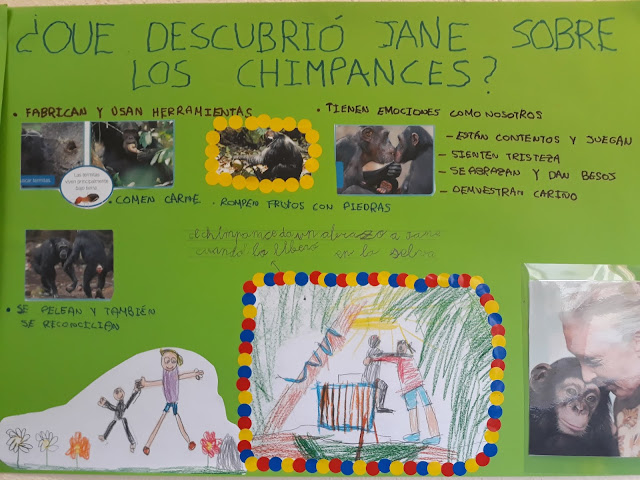 ¿QUE DESCUBRIÓ JANE SOBRE
LOS CHIMPANCES?
• FABRICAN Y USAN HERRAMIENTAS
• TIENEN EMOCIONES COMO NOSOTROS
– ESTÁN CONTENTOS Y JUEGAN
– SIENTEN TRISTEZA
– SE ABRAZAN Y DAN BESOS
– DEMUESTRAN CARIÑO
Las termitas
viven principalmente
bajo tierra
• COMEN CARNE
• ROMPEN FRUTOS CON PIEDRAS
el chimpance da un abrazo a Jane
cuando lo liberó en la selva
• SE PELEAN Y TAMBIÉN
SE RECONCILIAN